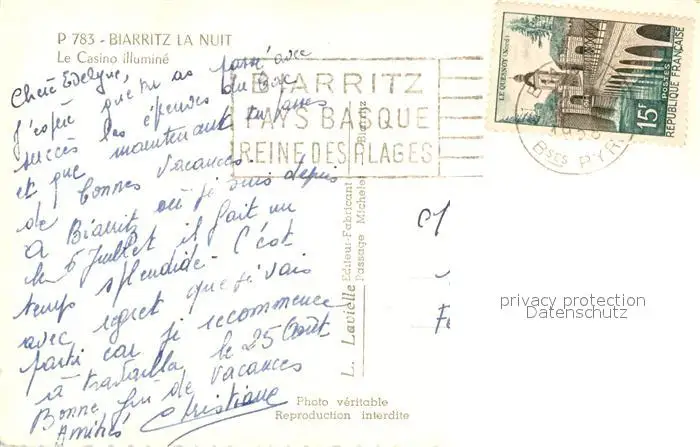 P 783 - BIARRITZ LA NUIT
Le Casino illuminé
Chère Edelyne,
J'espère que tu as passé avec
succès les épreuves du Bac
et que maintenant tu passes
de bonnes vacances
à Biarritz où je suis depuis
le 5 Juillet il fait un
temps splendide. C'est
avec regret que je vais
partir car je recommence
à travailler le 25 Août
Bonne fin de vacances
Amitiés Christiane
BIARRITZ
PAYS BASQUE
REINE DES PLAGES
LE QUESNOY (Nord)
15F
POSTES
REPUBLIQUE FRANÇAISE
Bses PYR
L. Lavielle Editeur-Fabricant
Passage Michelet Biarritz
Photo véritable
Reproduction interdite
privacy protection
Datenschutz